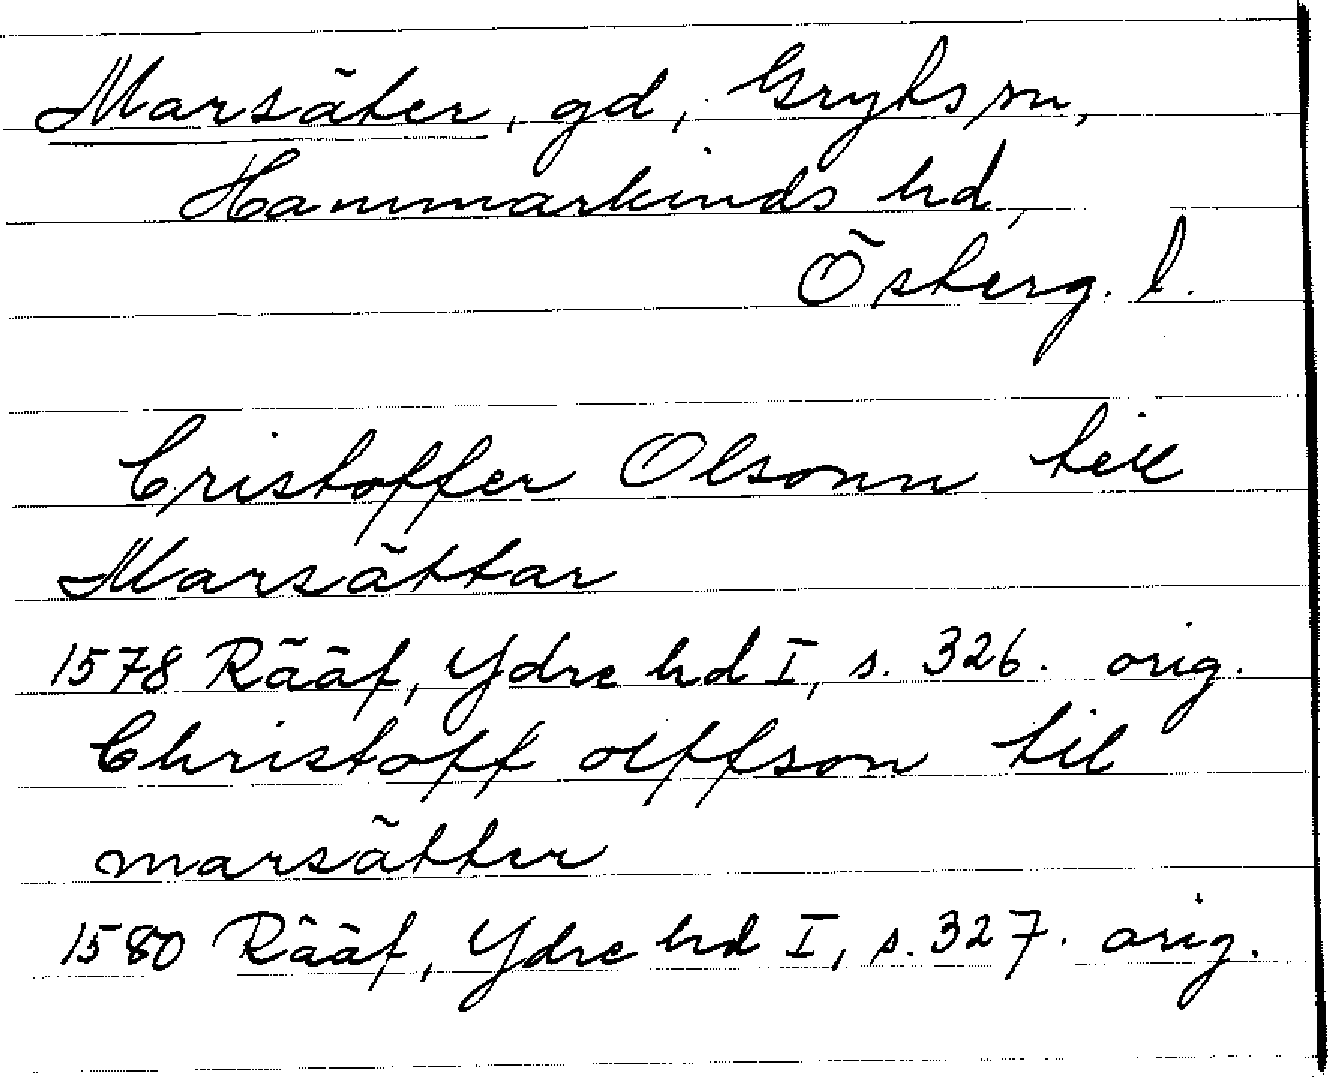 Marsäter, gd, Gryts sn,
Hammarkinds hd,
Österg. l.
Cristoffer Olsonn till
Marsättar
1578 Rääf, Ydre hd I, s. 326. orig.
Christoff olffson til
marsätter
1580 Rääf, Ydre hd I, s. 327. orig.